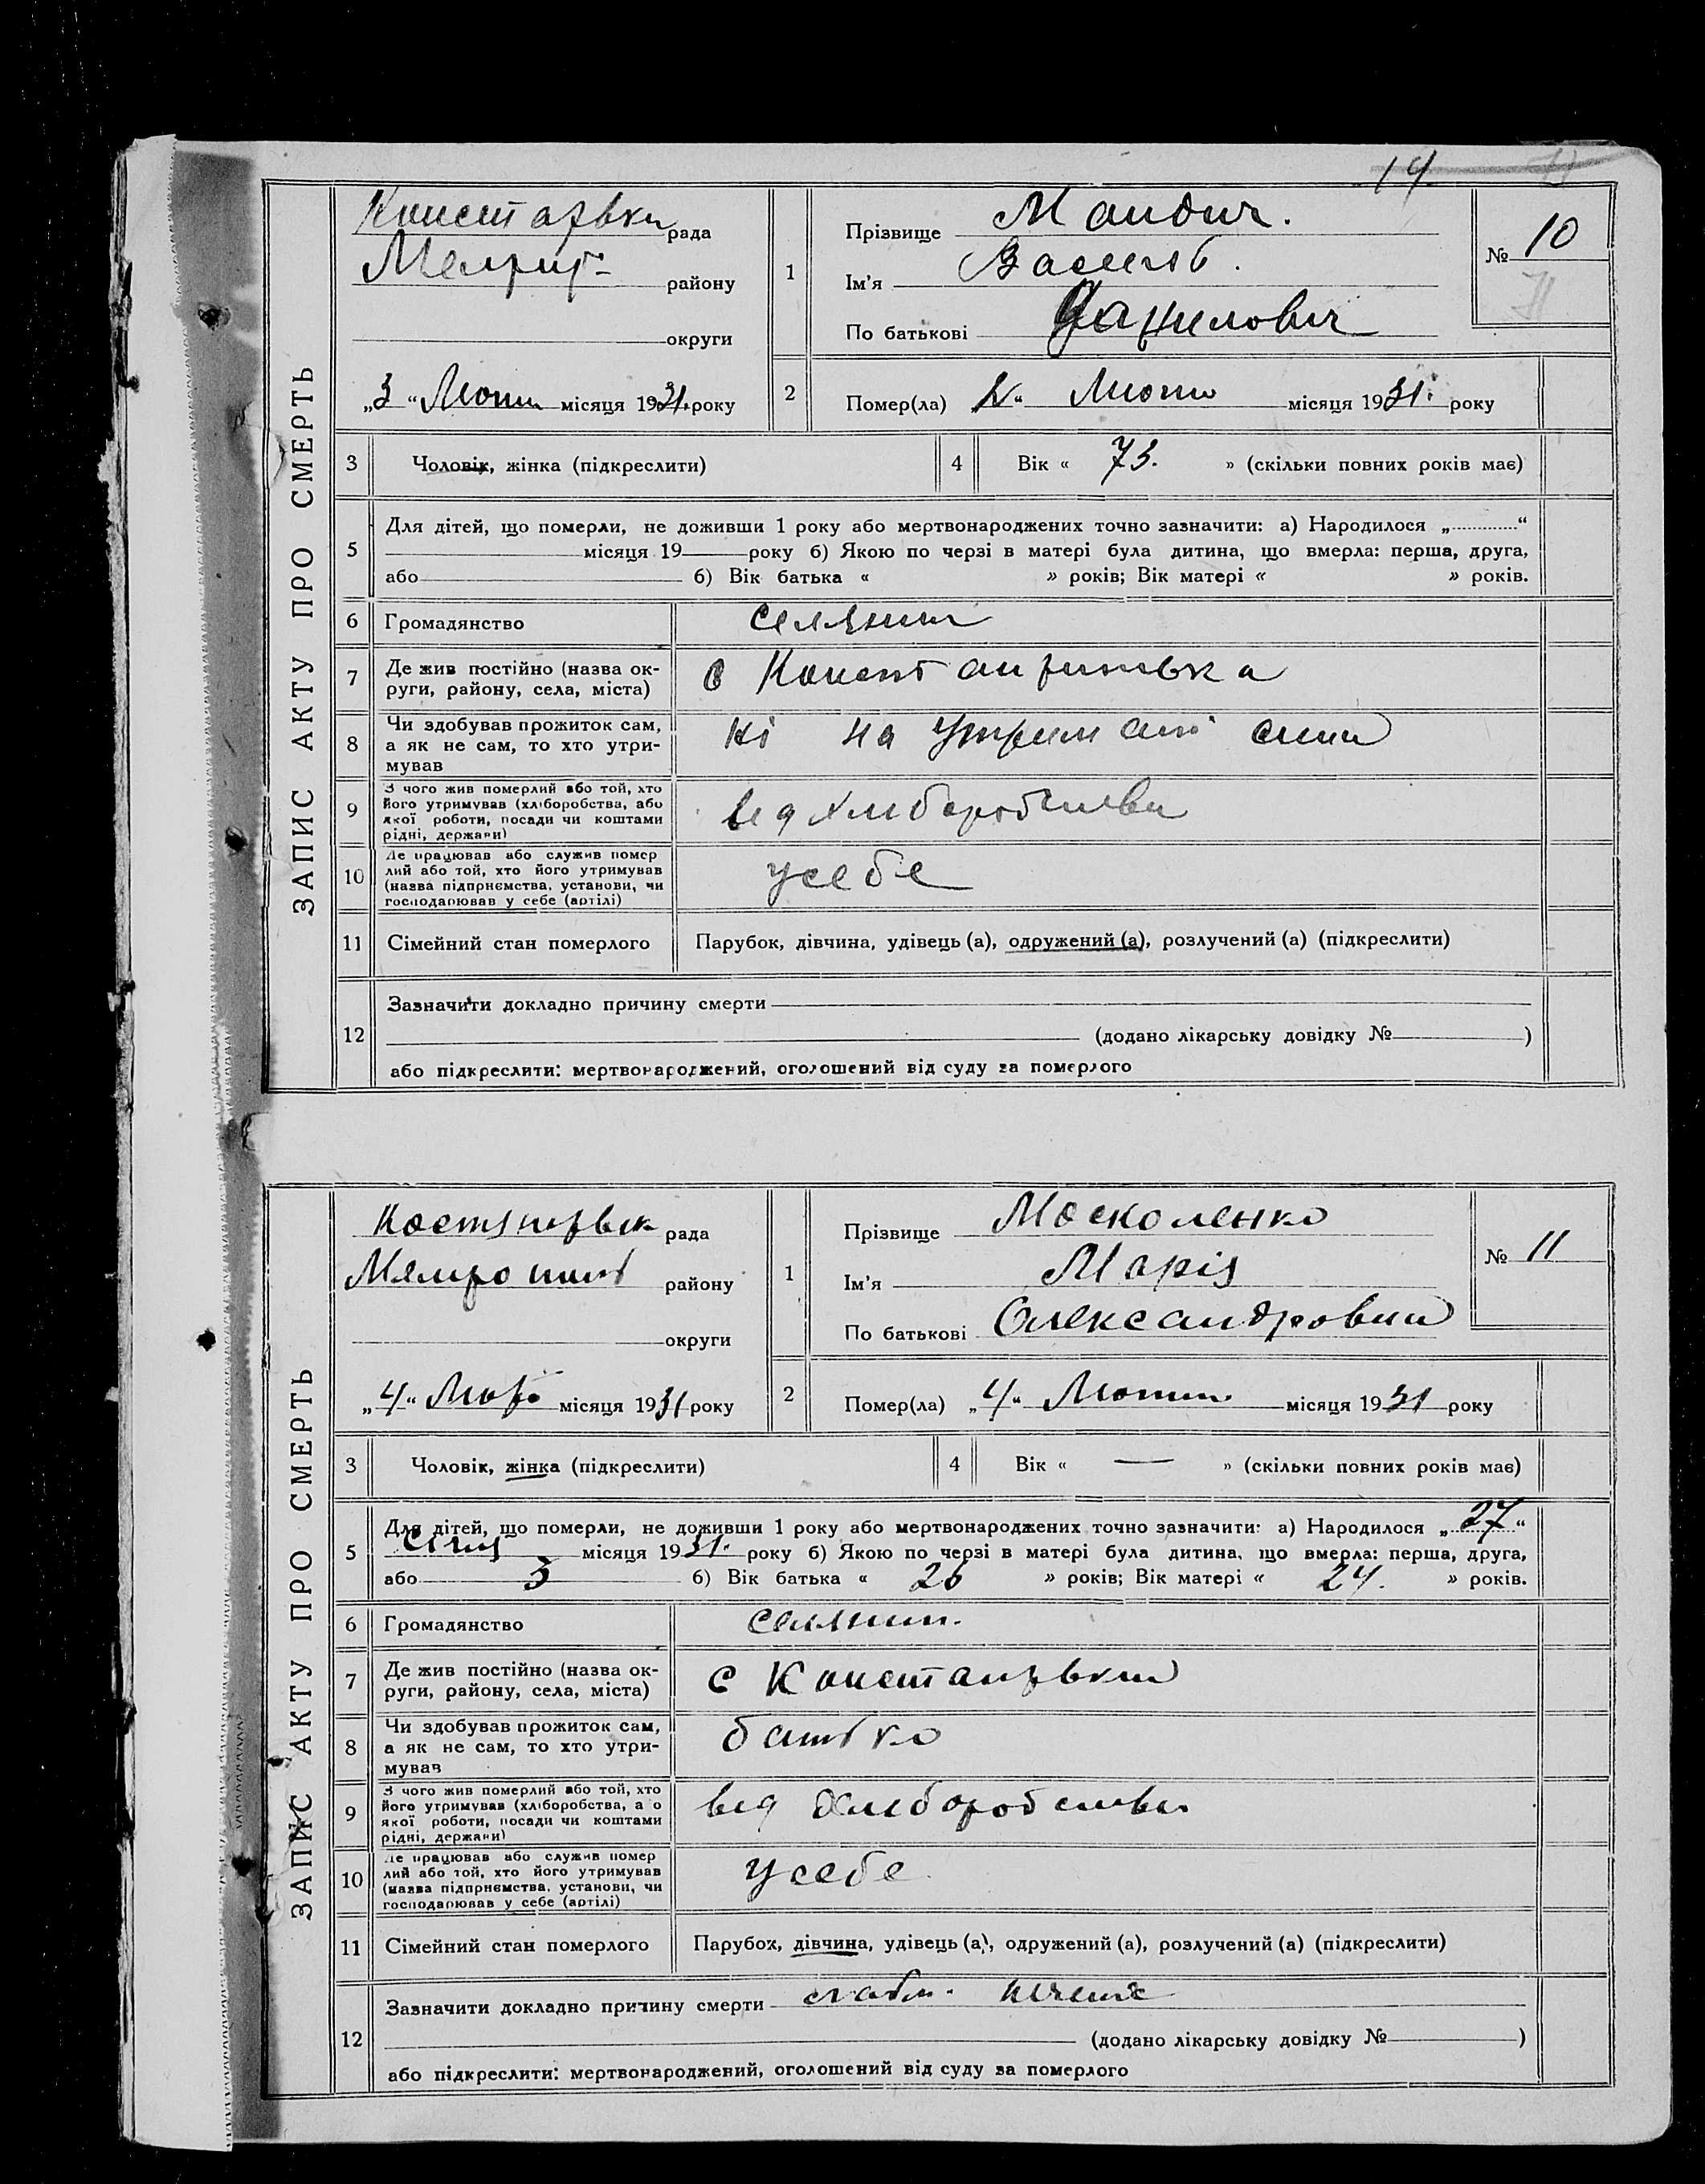 14
ЗАПИС АКТУ ПРО СМЕРТЬ
рада
району
округи
„3“ Лют місяця 1931 року
1
Прізвище Мандич.
Ім'я Василь.
По батькові Данилович
№ 10
2
Помер(ла) „2“ Люто місяця 1931. року
3
Чоловік, жінка (підкреслити)
4
Вік « 73. » (скільки повних років має)
5
Для дітей, що померли, не доживши 1 року або мертвонароджених точно зазначити: а) Народилося „ “
місяця 19 року б) Якою по черзі в матері була дитина, що вмерла: перша, друга,
або б) Вік батька « » років; Вік матері « » років.
6
Громадянство селянин
7
Де жив постійно (назва ок-
руги, району, села, міста)
с
8
Чи здобував прожиток сам,
а як не сам, то хто утри-
мував
ні на утриман сина
9
З чого жив померлий або той, хто
його утримував (хліборобства, або
якої роботи, посади чи коштами
рідні, держави)
від хліборобства
10
Де працював або служив помер
лий або той, хто його утримував
(назва підприємства, установи, чи
господарював у себе (артілі)
усебе
11
Сімейний стан померлого
Парубок, дівчина, удівець (а), одружений (а), розлучений (а) (підкреслити)
12
Зазначити докладно причину смерти
(додано лікарську довідку № )
або підкреслити: мертвонароджений, оголошений від суду за померлого
ЗАПИС АКТУ ПРО СМЕРТЬ
рада
району
округи
„4“ місяця 1931 року
1
Прізвище Москаленко
Ім'я Марія
По батькові Олександровна
№ 11
2
Помер(ла) „4“ Лютого місяця 1931 року
3
Чоловік, жінка (підкреслити)
4
Вік « — » (скільки повних років має)
5
Для дітей, що померли, не доживши 1 року або мертвонароджених точно зазначити: а) Народилося „27“
Січня місяця 1931. року б) Якою по черзі в матері була дитина, що вмерла: перша, друга,
або 3 б) Вік батька « 26 » років; Вік матері « 24. » років.
6
Громадянство селянин.
7
Де жив постійно (назва ок-
руги, району, села, міста)
с
8
Чи здобував прожиток сам,
а як не сам, то хто утри-
мував
батько
9
З чого жив померлий або той, хто
його утримував (хліборобства, а о
якої роботи, посади чи коштами
рідні, держави)
від хліборобства
10
Де працював або служив помер
лий або той, хто його утримував
(назва підприємства, установи, чи
господарював у себе (артілі)
усебе
11
Сімейний стан померлого
Парубок, дівчина, удівець (а), одружений (а), розлучений (а) (підкреслити)
12
Зазначити докладно причину смерти
(додано лікарську довідку № )
або підкреслити: мертвонароджений, оголошений від суду за померлого